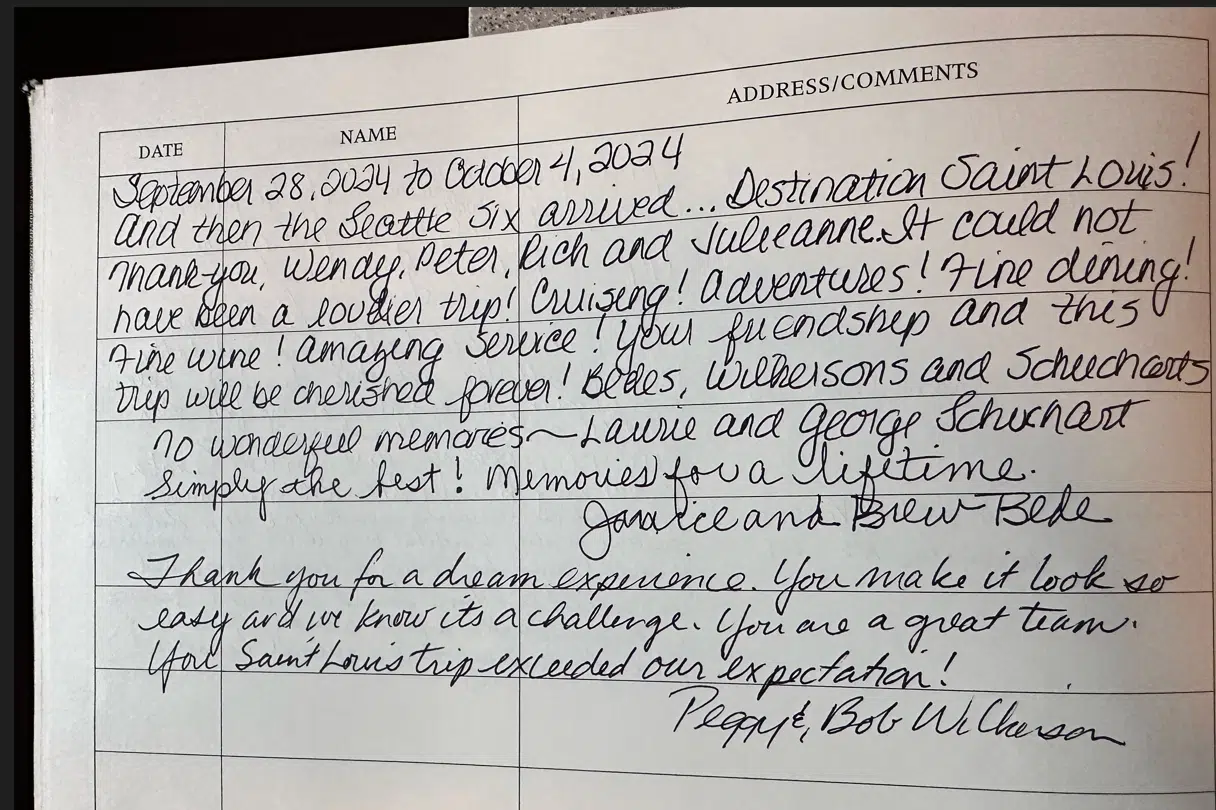 ADDRESS/COMMENTS
DATE NAME
September 28, 2024 to October 4, 2024
And then the Seattle Six arrived... Destination Saint Louis!
Thank-you, Wendy, Peter, Rich and Julieanne. It could not
have been a lovelier trip! Cruising! Adventures! Fine dining!
Fine wine! Amazing Service! Your friendship and this
trip will be cherished forever! Bedes, Wilkersons and Schuecharts
To wonderful memories~ Laurie and George Schuchart
Simply the best! Memories for a lifetime.
Janice and Brew Bede
Thank you for a dream experience. You make it look so
easy and we know its a challenge. You are a great team.
Saint Louis trip exceeded our expectation!
Peggy &, Bob Wilkerson